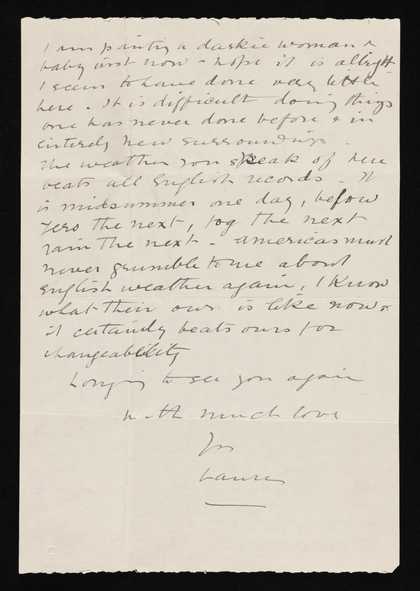 I am painting a darkie woman &
baby just now - hope it is allright
I seem to have done very little
here. It is difficult doing things
one has never done before & in
entirely new surroundings.
The weather you speak of here
beats all English records - It
is midsummer one day, below
zero the next, fog the next
rain the next - Americas must
never grumble to me about
English weather again, I know
what their own is like now &
it certainly beats ours for
changeability
Longing to see you again
with much love
Laura